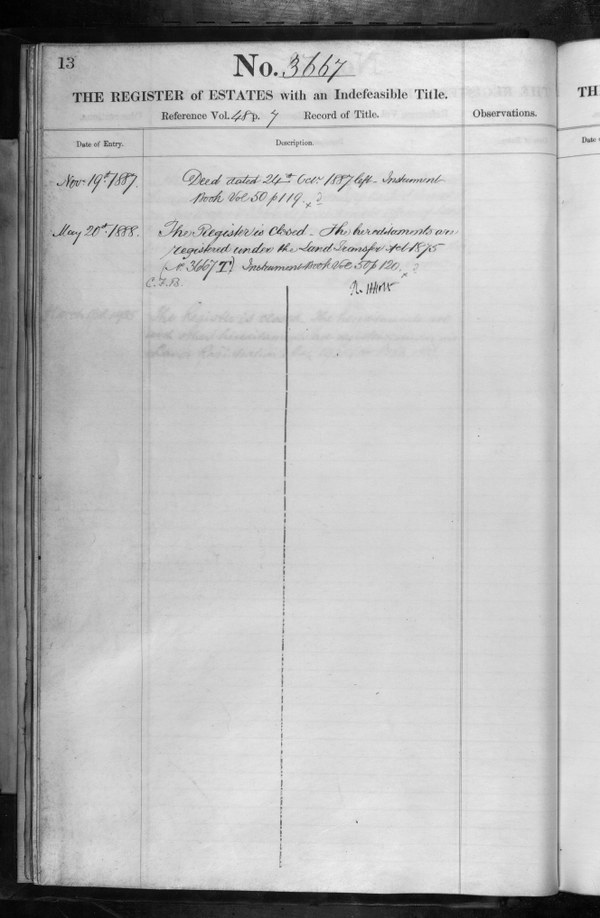 13
No. 3667
THE REGISTER of ESTATES with an Indefeasible Title.
Reference Vol. 48 p. 7 Record of Title.
Observations.
Date of Entry.
Description.
Nov. 19th 1887.
Deed dated 24th Octr 1887 left - Instrument
Book Vol 50 p 119. x
May 20th 1888.
The Register is closed - The hereditaments are
registered under the Land Transfer Act 1875
(No. 3667 T) Instrument Book Vol. 50 p 120. x
C.F.B.
R. Holt
TH
Date